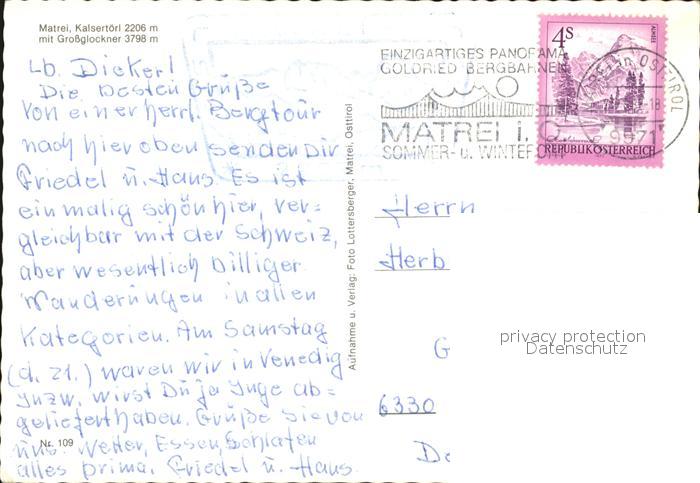 Matrei, Kalsertörl 2206 m
mit Großglockner 3798 m
Lb. Dicker!
Die besten Grüße
von einer herrl. Bergtour
nach hier oben senden Dir
Friedel u. Hans. Es ist
einmalig schön hier, ver=
gleichbar mit der Schweiz,
aber wesentlich billiger
Wanderungen in allen
Kategorien. Am Samstag
(d. 21.) waren wir in Venedig
Inzw. wirst Du ja Inge ab=
geliefert haben. Grüße Sie von
uns. Wetter, Essen, Schlafen
alles prima. Friedel u. Hans.
Nr. 109
Aufnahme u. Verlag: Foto Lottersberger, Matrei, Osttirol
EINZIGARTIGES PANORAMA
GOLDRIED BERGBAHNEN
MATREI i. O.
SOMMER- u. WINTER
4S
ALMSEE
REPUBLIK ÖSTERREICH
OSTTIROL
-18
9971
Herrn
Herb
G
6330
De
privacy protection
Datenschutz